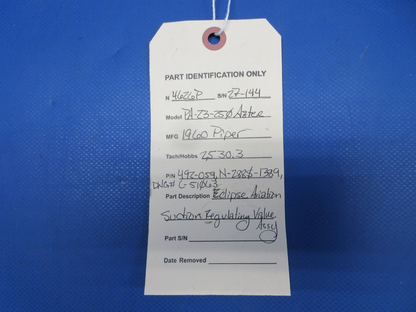 PART IDENTIFICATION ONLY
N 4626P S/N 27-144
Model PA-23-250 Aztec
MFG 1960 Piper
Tach/Hobbs 2530.3
P/N 492-059, N-2286-1389,
DWG# C-51063
Part Description Eclipse Aviation
Suction Regulating Valve
Assy
Part S/N
Date Removed